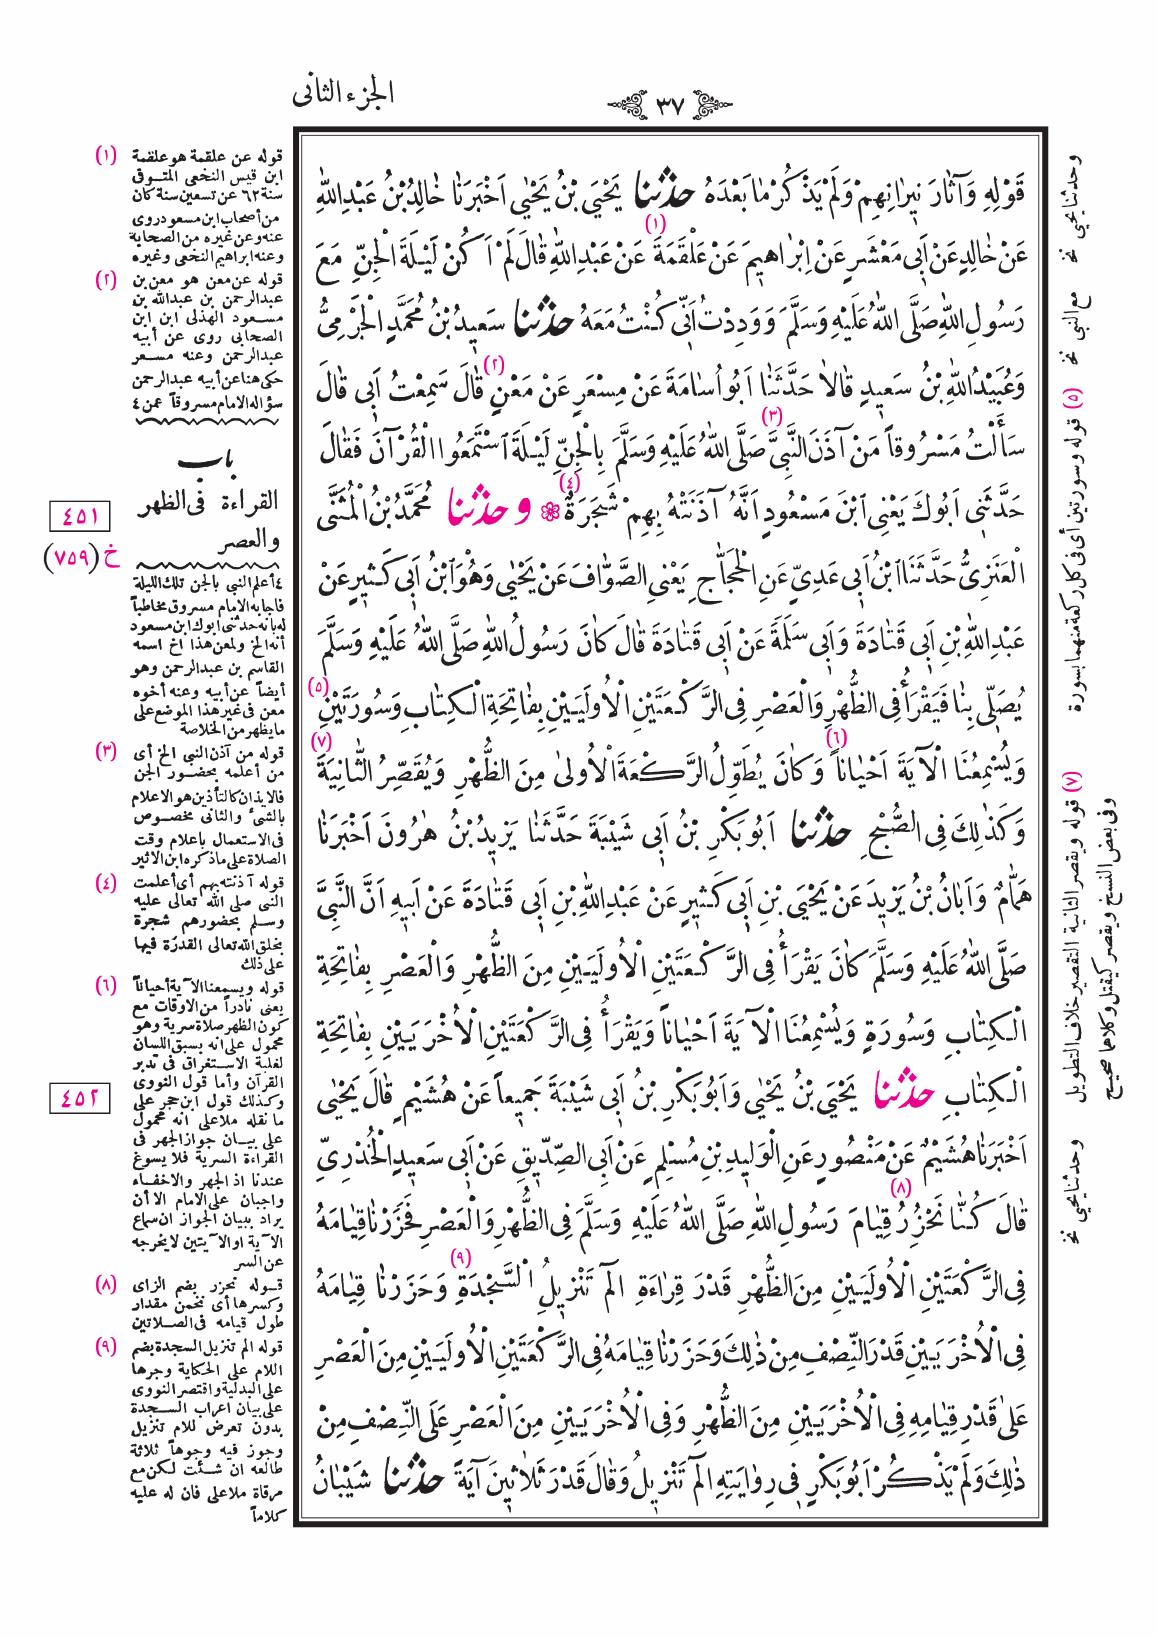 الجزء الثانى
٣٧
قَوْلِهِ وَآثَارَ نِيرَانِهِمْ وَلَمْ يَذْكُرْ مَا بَعْدَهُ حدثنا يَحْيَى بْنُ يَحْيٰى اَخْبَرَنَا خَالِدُ بْنُ عَبْدِ اللّٰهِ
عَنْ خَالِدٍ عَنْ اَبِى مَعْشَرٍ عَنْ اِبْرَاهِيمَ عَنْ عَلْقَمَةَ (١) عَنْ عَبْدِ اللّٰهِ قَالَ لَمْ اَكُنْ لَيْلَةَ الْجِنِّ مَعَ
رَسُولِ اللّٰهِ صَلَّى اللّٰهُ عَلَيْهِ وَسَلَّمَ وَوَدِدْتُ اَنِّى كُنْتُ مَعَهُ حدثنا سَعِيدُ بْنُ مُحَمَّدٍ الْجَرْمِىُّ
وَعُبَيْدُ اللّٰهِ بْنُ سَعِيدٍ قَالَا حَدَّثَنَا اَبُو اُسَامَةَ عَنْ مِسْعَرٍ عَنْ مَعْنٍ (٢) قَالَ سَمِعْتُ اَبِى قَالَ
سَأَلْتُ مَسْرُوقاً مَنْ آذَنَ النَّبِىَّ (٣) صَلَّى اللّٰهُ عَلَيْهِ وَسَلَّمَ بِالْجِنِّ لَيْلَةَ اسْتَمَعُوا الْقُرْآنَ فَقَالَ
حَدَّثَنِى اَبُوكَ يَعْنِى ابْنَ مَسْعُودٍ اَنَّهُ آذَنَتْهُ بِهِمْ شَجَرَةٌ (٤) ۞ و حدثنا مُحَمَّدُ بْنُ الْمُثَنَّى
الْعَنَزِىُّ حَدَّثَنَا ابْنُ اَبِى عَدِىٍّ عَنِ الْحَجَّاجِ يَعْنِى الصَّوَّافَ عَنْ يَحْيٰى وَهُوَ ابْنُ اَبِى كَثِيرٍ عَنْ
عَبْدِ اللّٰهِ بْنِ اَبِى قَتَادَةَ وَاَبِى سَلَمَةَ عَنْ اَبِى قَتَادَةَ قَالَ كَانَ رَسُولُ اللّٰهِ صَلَّى اللّٰهُ عَلَيْهِ وَسَلَّمَ
يُصَلِّى بِنَا فَيَقْرَأُ فِى الظُّهْرِ وَالْعَصْرِ فِى الرَّكْعَتَيْنِ الْاُولَيَيْنِ بِفَاتِحَةِ الْكِتَابِ وَسُورَتَيْنِ (٥)
وَيُسْمِعُنَا الْآيَةَ اَحْيَاناً (٦) وَكَانَ يُطَوِّلُ الرَّكْعَةَ الْاُولىٰ مِنَ الظُّهْرِ وَيُقَصِّرُ الثَّانِيَةَ (٧)
وَكَذٰلِكَ فِى الصُّبْحِ حدثنا اَبُو بَكْرِ بْنُ اَبِى شَيْبَةَ حَدَّثَنَا يَزِيدُ بْنُ هٰرُونَ اَخْبَرَنَا
هَمَّامٌ وَاَبَانُ بْنُ يَزِيدَ عَنْ يَحْيَى بْنِ اَبِى كَثِيرٍ عَنْ عَبْدِ اللّٰهِ بْنِ اَبِى قَتَادَةَ عَنْ اَبِيهِ اَنَّ النَّبِىَّ
صَلَّى اللّٰهُ عَلَيْهِ وَسَلَّمَ كَانَ يَقْرَأُ فِى الرَّكْعَتَيْنِ الْاُولَيَيْنِ مِنَ الظُّهْرِ وَالْعَصْرِ بِفَاتِحَةِ
الْكِتَابِ وَسُورَةٍ وَيُسْمِعُنَا الْآيَةَ اَحْيَاناً وَيَقْرَأُ فِى الرَّكْعَتَيْنِ الْاُخْرَيَيْنِ بِفَاتِحَةِ
الْكِتَابِ حدثنا يَحْيَى بْنُ يَحْيٰى وَاَبُو بَكْرِ بْنُ اَبِى شَيْبَةَ جَمِيعاً عَنْ هُشَيْمٍ قَالَ يَحْيٰى
اَخْبَرَنَا هُشَيْمٌ عَنْ مَنْصُورٍ عَنِ الْوَلِيدِ بْنِ مُسْلِمٍ عَنْ اَبِى الصِّدِّيقِ عَنْ اَبِى سَعِيدٍ الْخُدْرِىِّ
قَالَ كُنَّا نَحْزُرُ (٨) قِيَامَ رَسُولِ اللّٰهِ صَلَّى اللّٰهُ عَلَيْهِ وَسَلَّمَ فِى الظُّهْرِ وَالْعَصْرِ فَحَزَرْنَا قِيَامَهُ
فِى الرَّكْعَتَيْنِ الْاُولَيَيْنِ مِنَ الظُّهْرِ قَدْرَ قِرَاءَةِ الٓمٓ تَنْزِيلُ السَّجْدَةِ (٩) وَحَزَرْنَا قِيَامَهُ
فِى الْاُخْرَيَيْنِ قَدْرَ النِّصْفِ مِنْ ذٰلِكَ وَحَزَرْنَا قِيَامَهُ فِى الرَّكْعَتَيْنِ الْاُولَيَيْنِ مِنَ الْعَصْرِ
عَلىٰ قَدْرِ قِيَامِهِ فِى الْاُخْرَيَيْنِ مِنَ الظُّهْرِ وَفِى الْاُخْرَيَيْنِ مِنَ الْعَصْرِ عَلَى النِّصْفِ مِنْ
ذٰلِكَ وَلَمْ يَذْكُرْ اَبُو بَكْرٍ فِى رِوَايَتِهِ الٓمٓ تَنْزِيلُ وَقَالَ قَدْرَ ثَلَاثِينَ آيَةً حدثنا شَيْبَانُ
وحدثنا يحيى نخ
مع النبى نخ
(٥) قوله وسورتين أى فى كل ركعة منهما بسورة
(٧) قوله ويقصر الثانية التقصير خلاف التطويل
وفى بعض النسخ ويقصر كيقتل وكلاهما صحيح
وحدثنا يحيى نخ
(١) قوله عن علقمة هو علقمة
ابن قيس النخعى المتوفى
سنة ٦٢ عن تسعين سنة كان
من أصحاب ابن مسعود روى
عنه وعن غيره من الصحابة
وعنه ابراهيم النخعى وغيره
(٢) قوله عن معن هو معن بن
عبدالرحمن بن عبدالله بن
مسعود الهذلى ابن ابن
الصحابى روى عن أبيه
عبدالرحمن وعنه مسعر
حكى هنا عن أبيه عبدالرحمن
سؤاله الامام مسروقاً عمن ٤
باب
القراءة فى الظهر
والعصر
٤٥١
خ (٧٥٩)
٤ أعلم النبي بالجن تلك الليلة
فاجابه الامام مسروق مخاطباً
له بانه حدثنى ابوك ابن مسعود
أنه الخ ولمعن هذا اخ اسمه
القاسم بن عبدالرحمن وهو
أيضاً عن أبيه وعنه أخوه
معن فى غير هذا الموضع على
ما يظهر من الخلاصة
(٣) قوله من آذن النبي الخ أى
من أعلمه بحضور الجن
فالايذان كالتأذين هو الاعلام
بالشئ والثانى مخصوص
فى الاستعمال باعلام وقت
الصلاة على ما ذكره ابن الاثير
(٤) قوله آذنته بهم أى أعلمت
النبى صلى الله تعالى عليه
وسلم بحضورهم شجرة
بخلق الله تعالى القدرة فيها
على ذلك
(٦) قوله ويسمعنا الآية أحياناً
يعنى نادراً من الاوقات مع
كون الظهر صلاة سرية وهو
محمول على انه بسبق اللسان
لغلبة الاستغراق فى تدبر
القرآن وأما قول النووى
وكذلك قول ابن حجر على
ما نقله ملا على انه محمول
على بيان جواز الجهر فى
القراءة السرية فلا يسوغ
عندنا اذ الجهر والاخفاء
واجبان على الامام الا أن
يراد ببيان الجواز ان سماع
الآية او الآيتين لا يخرجه
عن السر
٤٥٢
(٨) قوله نحزر بضم الزاى
وكسرها أى نخمن مقدار
طول قيامه فى الصلاتين
(٩) قوله الم تنزيل السجدة بضم
اللام على الحكاية وجرها
على البدلية واقتصر النووى
على بيان اعراب السجدة
بدون تعرض للام تنزيل
وجوز فيه وجوهاً ثلاثة
طالعه ان شئت لكن مع
مرقاة ملا على فان له عليه
كلاماً